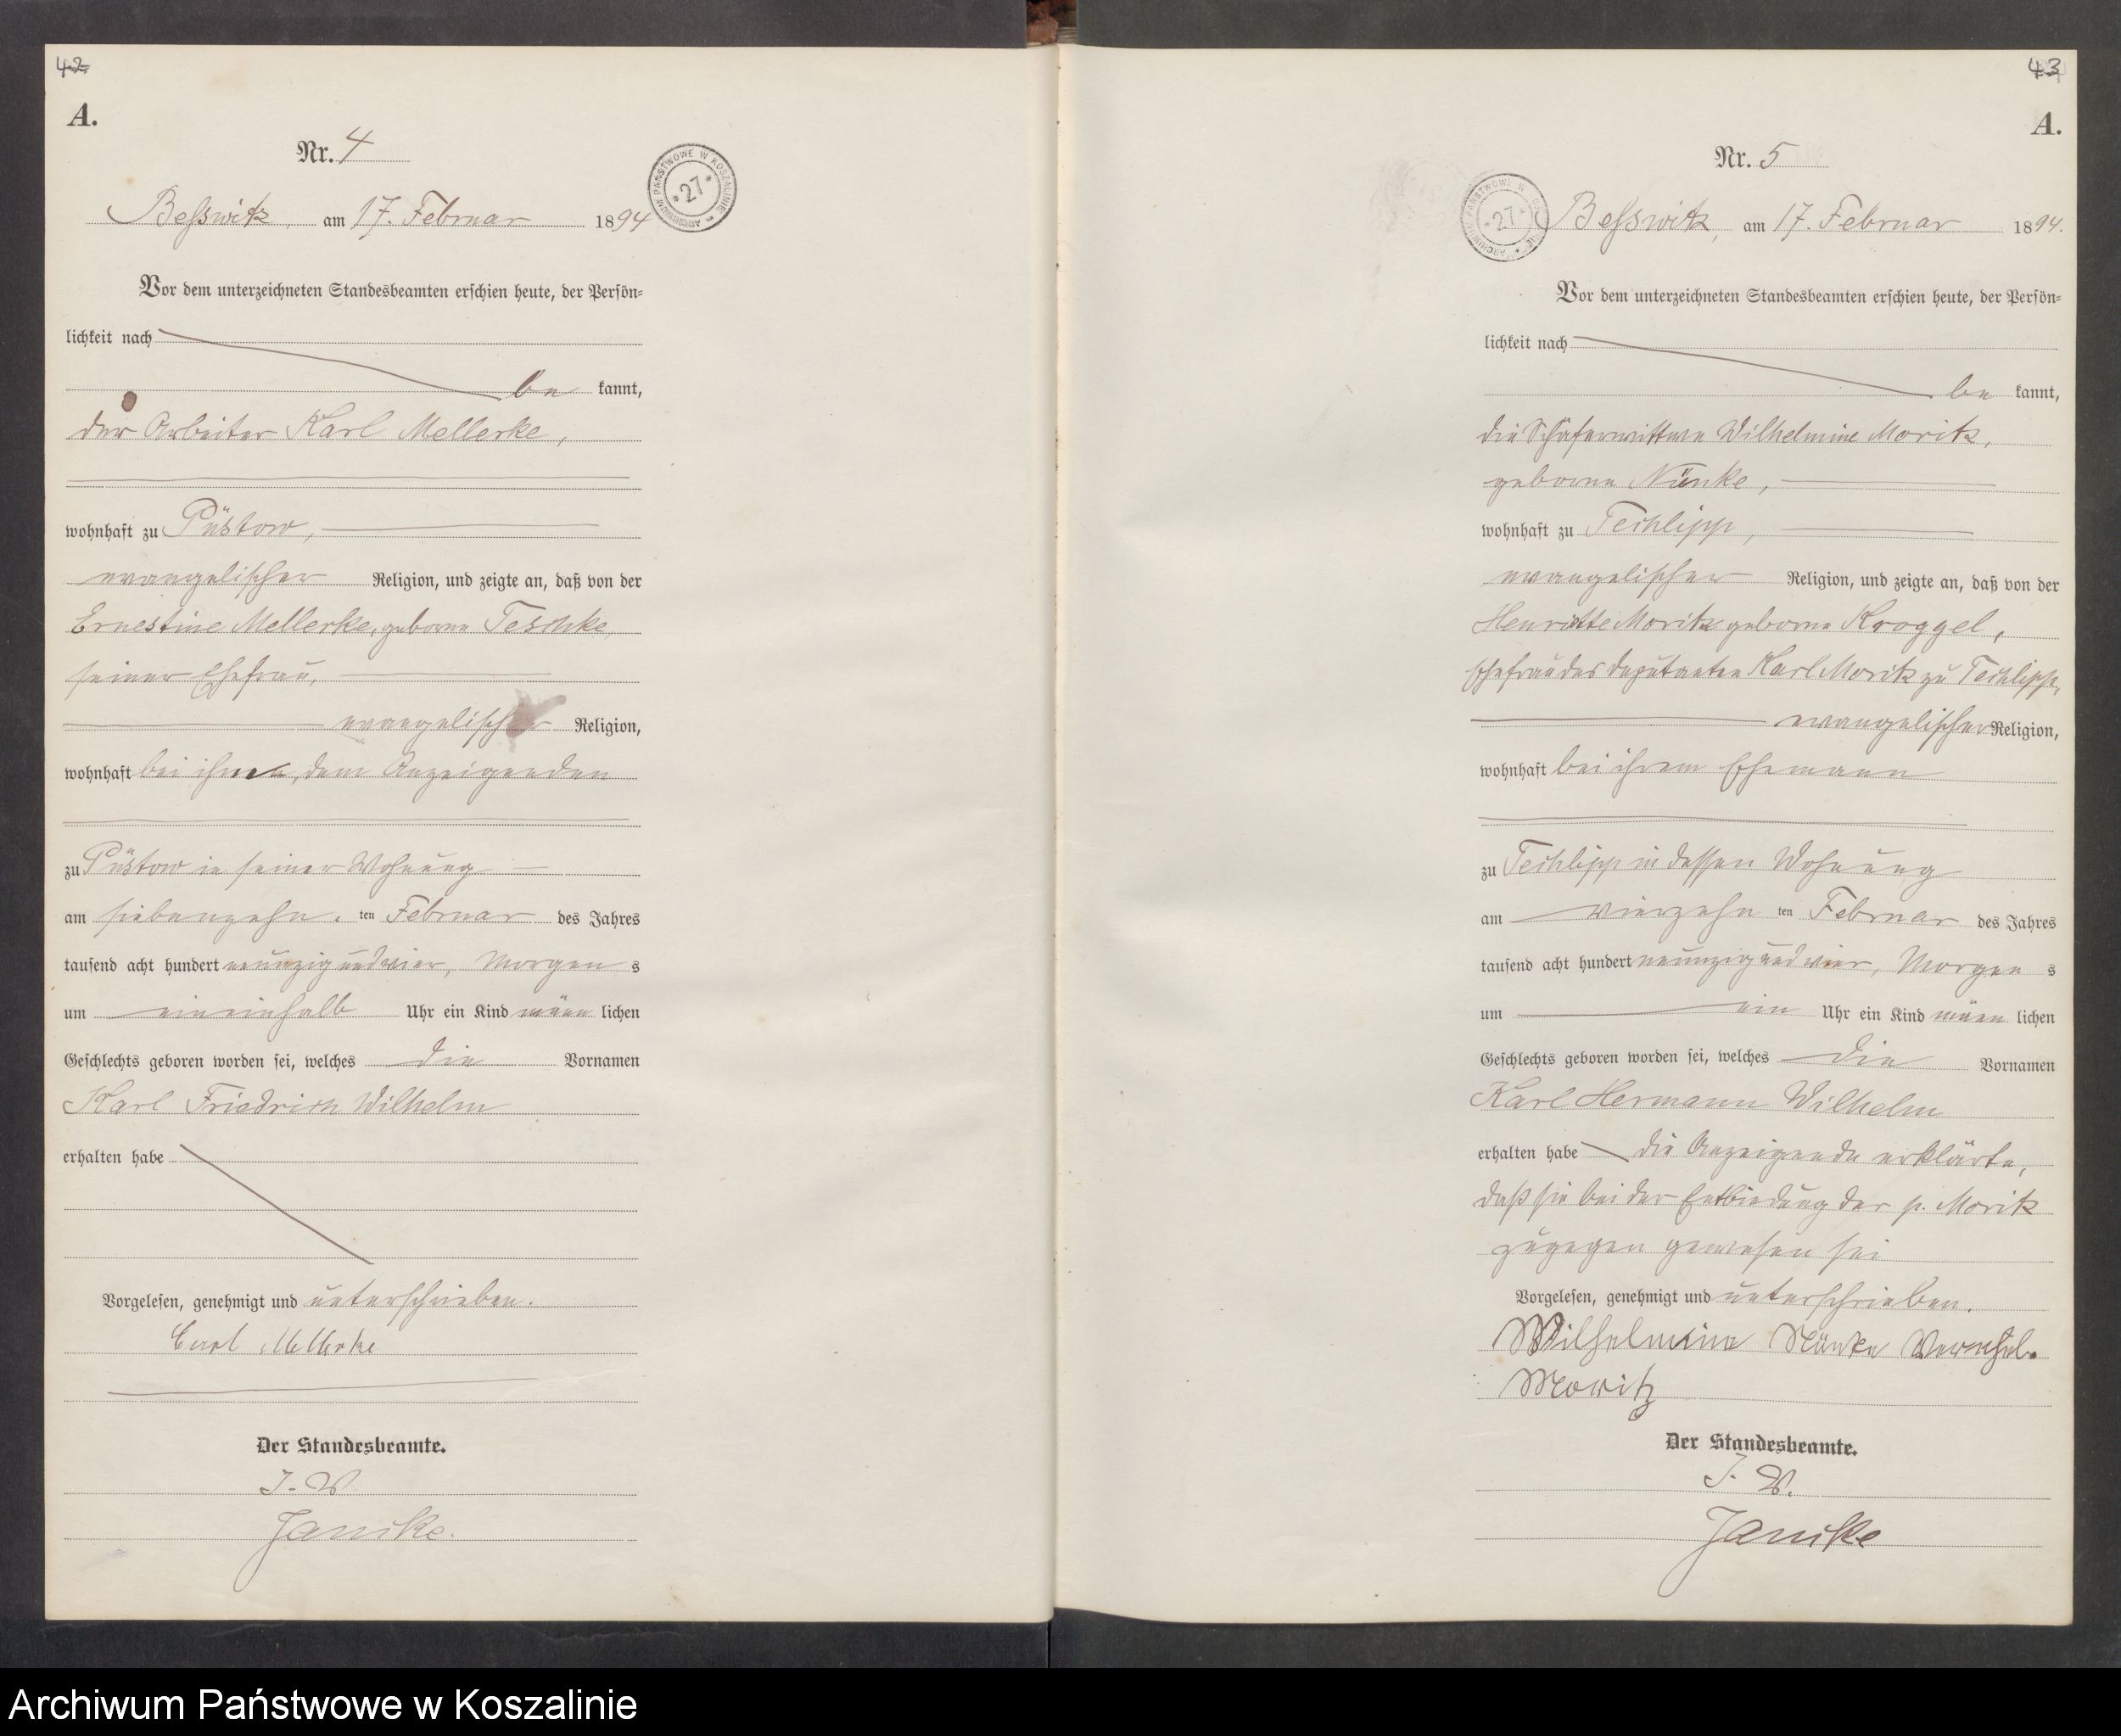 42
A.
Nr. 4
ARCHIWUM PAŃSTWOWE W KOSZALINIE * 27 *
Besswitz, am 17. Februar 1894
Vor dem unterzeichneten Standesbeamten erschien heute, der Persön-
lichkeit nach
be kannt,
der Arbeiter Karl Mellerke,
wohnhaft zu Püstow,
evangelischer Religion, und zeigte an, daß von der
Ernestine Mellerke, geborne Teschke,
seiner Ehefrau,
evangelischer Religion,
wohnhaft bei ihm, dem Anzeigenden
zu Püstow in seiner Wohnung
am siebenzehn. ten Februar des Jahres
tausend acht hundert neunzig und vier, Morgen s
um eineinhalb Uhr ein Kind männ lichen
Geschlechts geboren worden sei, welches die Vornamen
Karl Friedrich Wilhelm
erhalten habe
Vorgelesen, genehmigt und unterschrieben.
Carl Mellerke
Der Standesbeamte.
J. V.
Janike.
43
A.
Nr. 5
ARCHIWUM PAŃSTWOWE W KOSZALINIE * 27 *
Besswitz, am 17. Februar 1894.
Vor dem unterzeichneten Standesbeamten erschien heute, der Persön-
lichkeit nach
be kannt,
die Schäferwittwe Wilhelmine Moritz,
geborne Nünke,
wohnhaft zu Techlipp,
evangelischer Religion, und zeigte an, daß von der
Henriette Moritz geborne Kroggel,
Ehefrau des Deputanten Karl Moritz zu Techlipp,
evangelischer Religion,
wohnhaft bei ihrem Ehemann
zu Techlipp in dessen Wohnung
am vierzehn ten Februar des Jahres
tausend acht hundert neunzig und vier, Morgen s
um ein Uhr ein Kind männ lichen
Geschlechts geboren worden sei, welches die Vornamen
Karl Hermann Wilhelm
erhalten habe die Anzeigende erklärte,
daß sie bei der Entbindung der p. Moritz
zugegen gewesen sei
Vorgelesen, genehmigt und unterschrieben.
Wilhelmine Nünke
Moritz
Der Standesbeamte.
J. V.
Janike
Archiwum Państwowe w Koszalinie